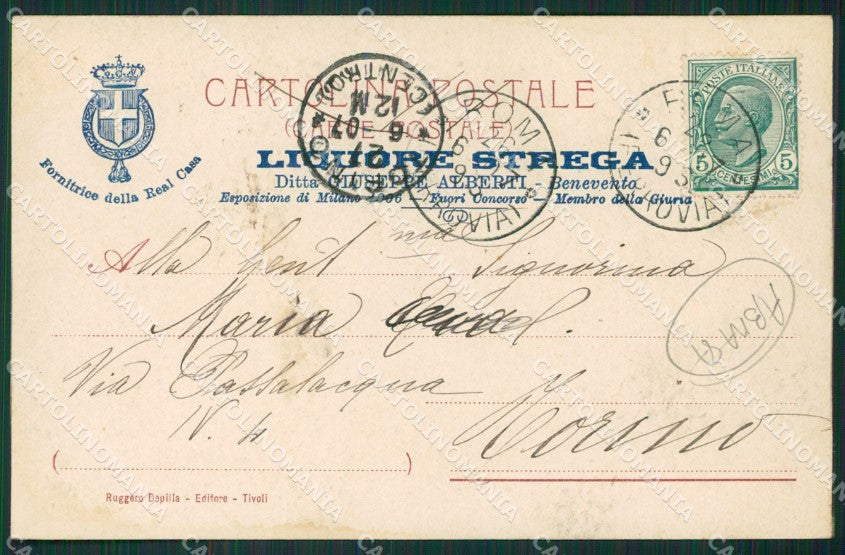 CARTOLINA POSTALE
(CARTE POSTALE)
LIQUORE STREGA
Ditta GIUSEPPE ALBERTI - Benevento
Esposizione di Milano 1906 - Fuori Concorso - Membro della Giuria
Fornitrice della Real Casa
POSTE ITALIANE
5 5
CENTESIMI
TORINO
(CENTRO)
12 M
6 -07
ROMA
FERROVIA
ROMA
FERROVIA
Alla Gent ma Signorina
Maria
Via Passalacqua
N. 4
Torino
ABMA
Ruggero Depilla - Editore - Tivoli
CARTOLINOMANIA